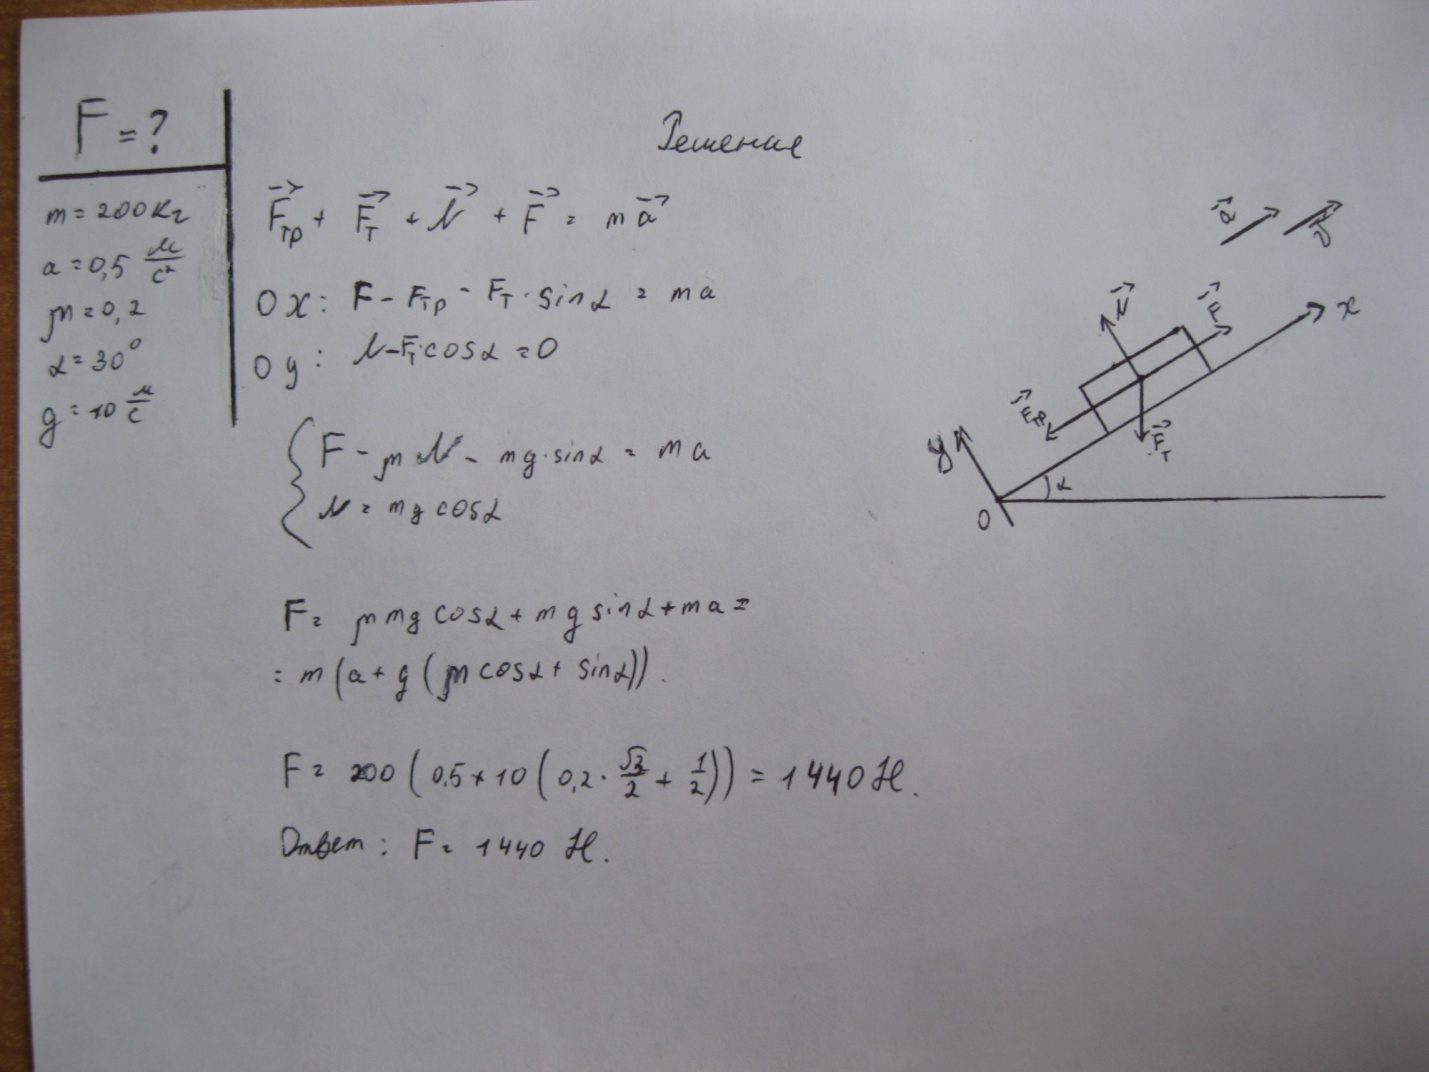 F = ?
m = 200 кг
a = 0,5 м/с²
μ = 0,2
α = 30°
g = 10 м/с
Решение
F⃗тр + F⃗т + N⃗ + F⃗ = m a⃗
OX: F - Fтр - Fт · sin α = ma
Oy: N - Fт · cos α = 0
{ F - μN - mg · sin α = ma
N = mg cos α
F = μmg cos α + mg sin α + ma =
= m(a + g(μ cos α + sin α)).
F = 200(0,5 + 10(0,2 · √3/2 + 1/2)) = 1440 Н.
Ответ: F = 1440 Н.
a⃗ v⃗
N⃗ F⃗ x
F⃗тр
y F⃗т
α
O